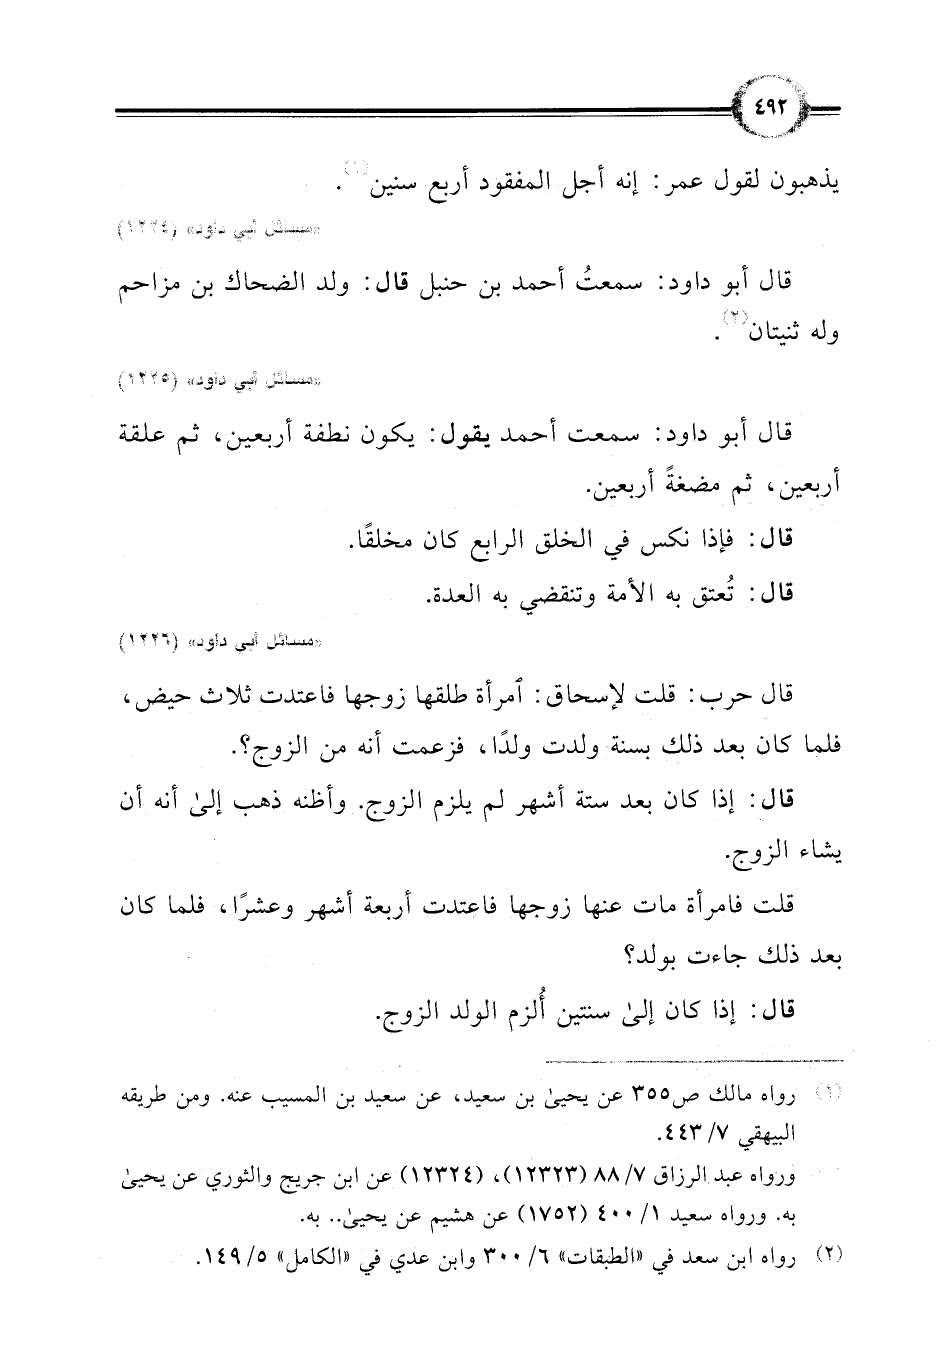 ٤٩٢
يذهبون لقول عمر: إنه أجل المفقود أربع سنين(١).
«مسائل أبي داود» (١٢٢٤)
قال أبو داود: سمعتُ أحمد بن حنبل قال: ولد الضحاك بن مزاحم
وله ثنيتان(٢).
«مسائل أبي داود» (١٢٢٥)
قال أبو داود: سمعت أحمد يقول: يكون نطفة أربعين، ثم علقة
أربعين، ثم مضغةً أربعين.
قال: فإذا نكس في الخلق الرابع كان مخلقًا.
قال: تُعتق به الأمة وتنقضي به العدة.
«مسائل أبي داود» (١٢٢٦)
قال حرب: قلت لإسحاق: ٱمرأة طلقها زوجها فاعتدت ثلاث حيض،
فلما كان بعد ذلك بسنة ولدت ولدًا، فزعمت أنه من الزوج؟.
قال: إذا كان بعد ستة أشهر لم يلزم الزوج. وأظنه ذهب إلىٰ أنه أن
يشاء الزوج.
قلت فامرأة مات عنها زوجها فاعتدت أربعة أشهر وعشرًا، فلما كان
بعد ذلك جاءت بولد؟
قال: إذا كان إلىٰ سنتين أُلزم الولد الزوج.
(١) رواه مالك ص٣٥٥ عن يحيىٰ بن سعيد، عن سعيد بن المسيب عنه. ومن طريقه
البيهقي ٧/ ٤٤٣.
ورواه عبد الرزاق ٧/ ٨٨ (١٢٣٢٣)، (١٢٣٢٤) عن ابن جريج والثوري عن يحيىٰ
به. ورواه سعيد ١/ ٤٠٠ (١٧٥٢) عن هشيم عن يحيىٰ.. به.
(٢) رواه ابن سعد في «الطبقات» ٦/ ٣٠٠ وابن عدي في «الكامل» ٥/ ١٤٩.